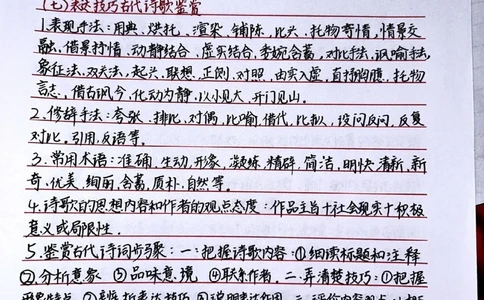 (七)表达技巧古代诗歌鉴赏
1.表现手法:用典、烘托、渲染、铺陈、比兴、托物寄情,情景交
融、借景抒情、动静结合、虚实结合、委婉含蓄,对比手法,讽喻手法,
象征法,双关法,起兴、联想、正侧、对照、由实入虚、直抒胸臆、托物
言志、借古讽今,化动为静,以小见大、开门见山。
2.修辞手法:夸张、排比、对偶、比喻、借代、比拟、设问反问、反复
对比。引用、反语等。
3.常用术语:准确、生动、形象、凝练、精辟、简洁、明快、清新、新
奇、优美、绚丽、含蓄、质朴、自然等。
4.诗歌的思想内容和作者的观点态度:作品主旨十社会现实十积极
意义或局限性。
5.鉴赏古代诗词步骤:一:把握诗歌内容:①细读标题和注释
②分析意象 ③品味意境 ④联系作者。二.弄清楚技巧:①把握
②辨析表达技巧 ③说明表达作用